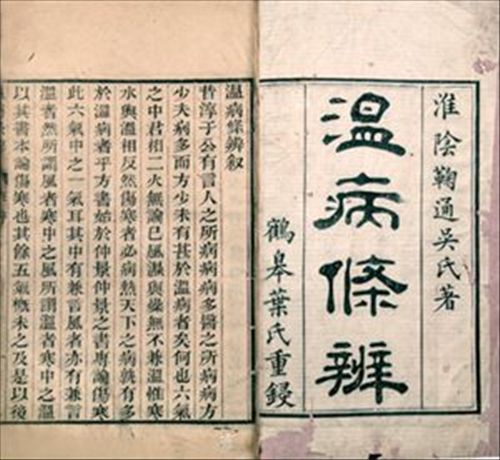 淮陰鞠通吳氏著
溫病條辨
鶴皋葉氏重鋟
溫病條辨叙
昔淳于公有言人之所病病病多醫之所病病方
少夫病多而方少未有甚於溫病者矣何也六氣
之中君相二火無論已風濕與燥無不兼溫惟寒
水與溫相反然傷寒者必病熱天下之病孰有多
於溫病者乎方書始於仲景仲景之書專論傷寒
此六氣中之一氣耳其中有兼言風者亦有兼言
溫者然所謂風者寒中之風所謂溫者寒中之溫
以其書本論傷寒也其餘五氣概未之及是以後